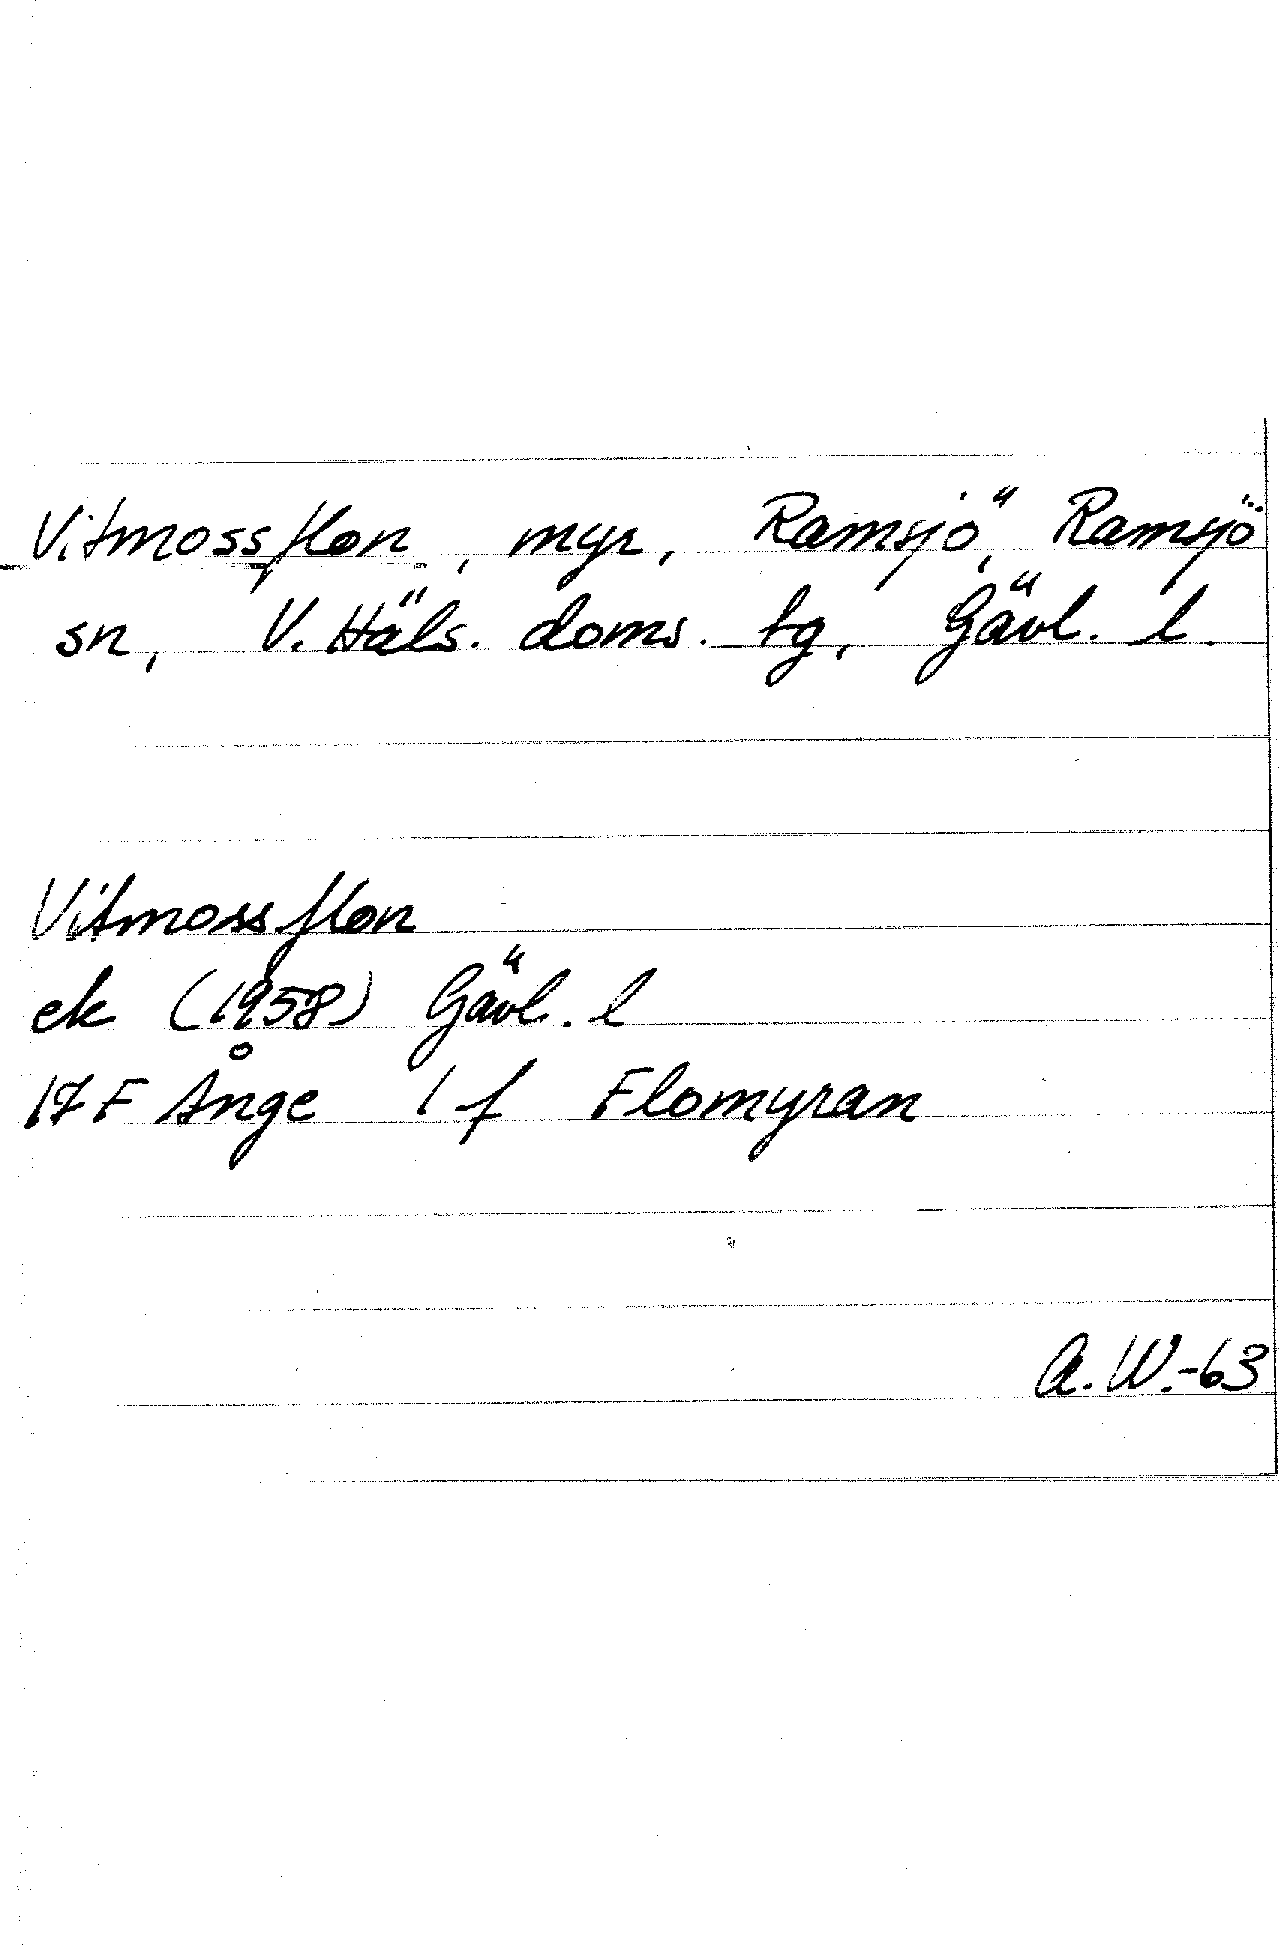 Vitmossflon, myr, Ramsjö, Ramsjö
sn, V. Häls. doms. tg, Gävl. l.
Vitmossflon
ek (1958) Gävl. l
17 F Ånge 1 f Flomyran
A. W.-63